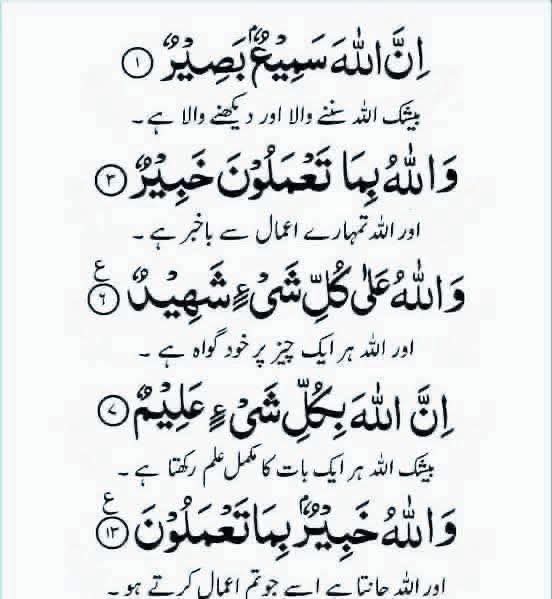 اِنَّ اللّٰهَ سَمِيْعٌۢ بَصِيْرٌ ۝۱
بیشک اللہ سننے والا اور دیکھنے والا ہے۔
وَاللّٰهُ بِمَا تَعْمَلُوْنَ خَبِيْرٌ ۝۳
اور اللہ تمہارے اعمال سے باخبر ہے۔
وَاللّٰهُ عَلٰى كُلِّ شَىْءٍ شَهِيْدٌ ۝۶ ع
اور اللہ ہر ایک چیز پر خود گواہ ہے۔
اِنَّ اللّٰهَ بِكُلِّ شَىْءٍ عَلِيْمٌ ۝۷
بیشک اللہ ہر ایک بات کا مکمل علم رکھتا ہے۔
وَاللّٰهُ خَبِيْرٌۢ بِمَا تَعْمَلُوْنَ ۝۱۳ ع
اور اللہ جانتا ہے اسے جو تم اعمال کرتے ہو۔